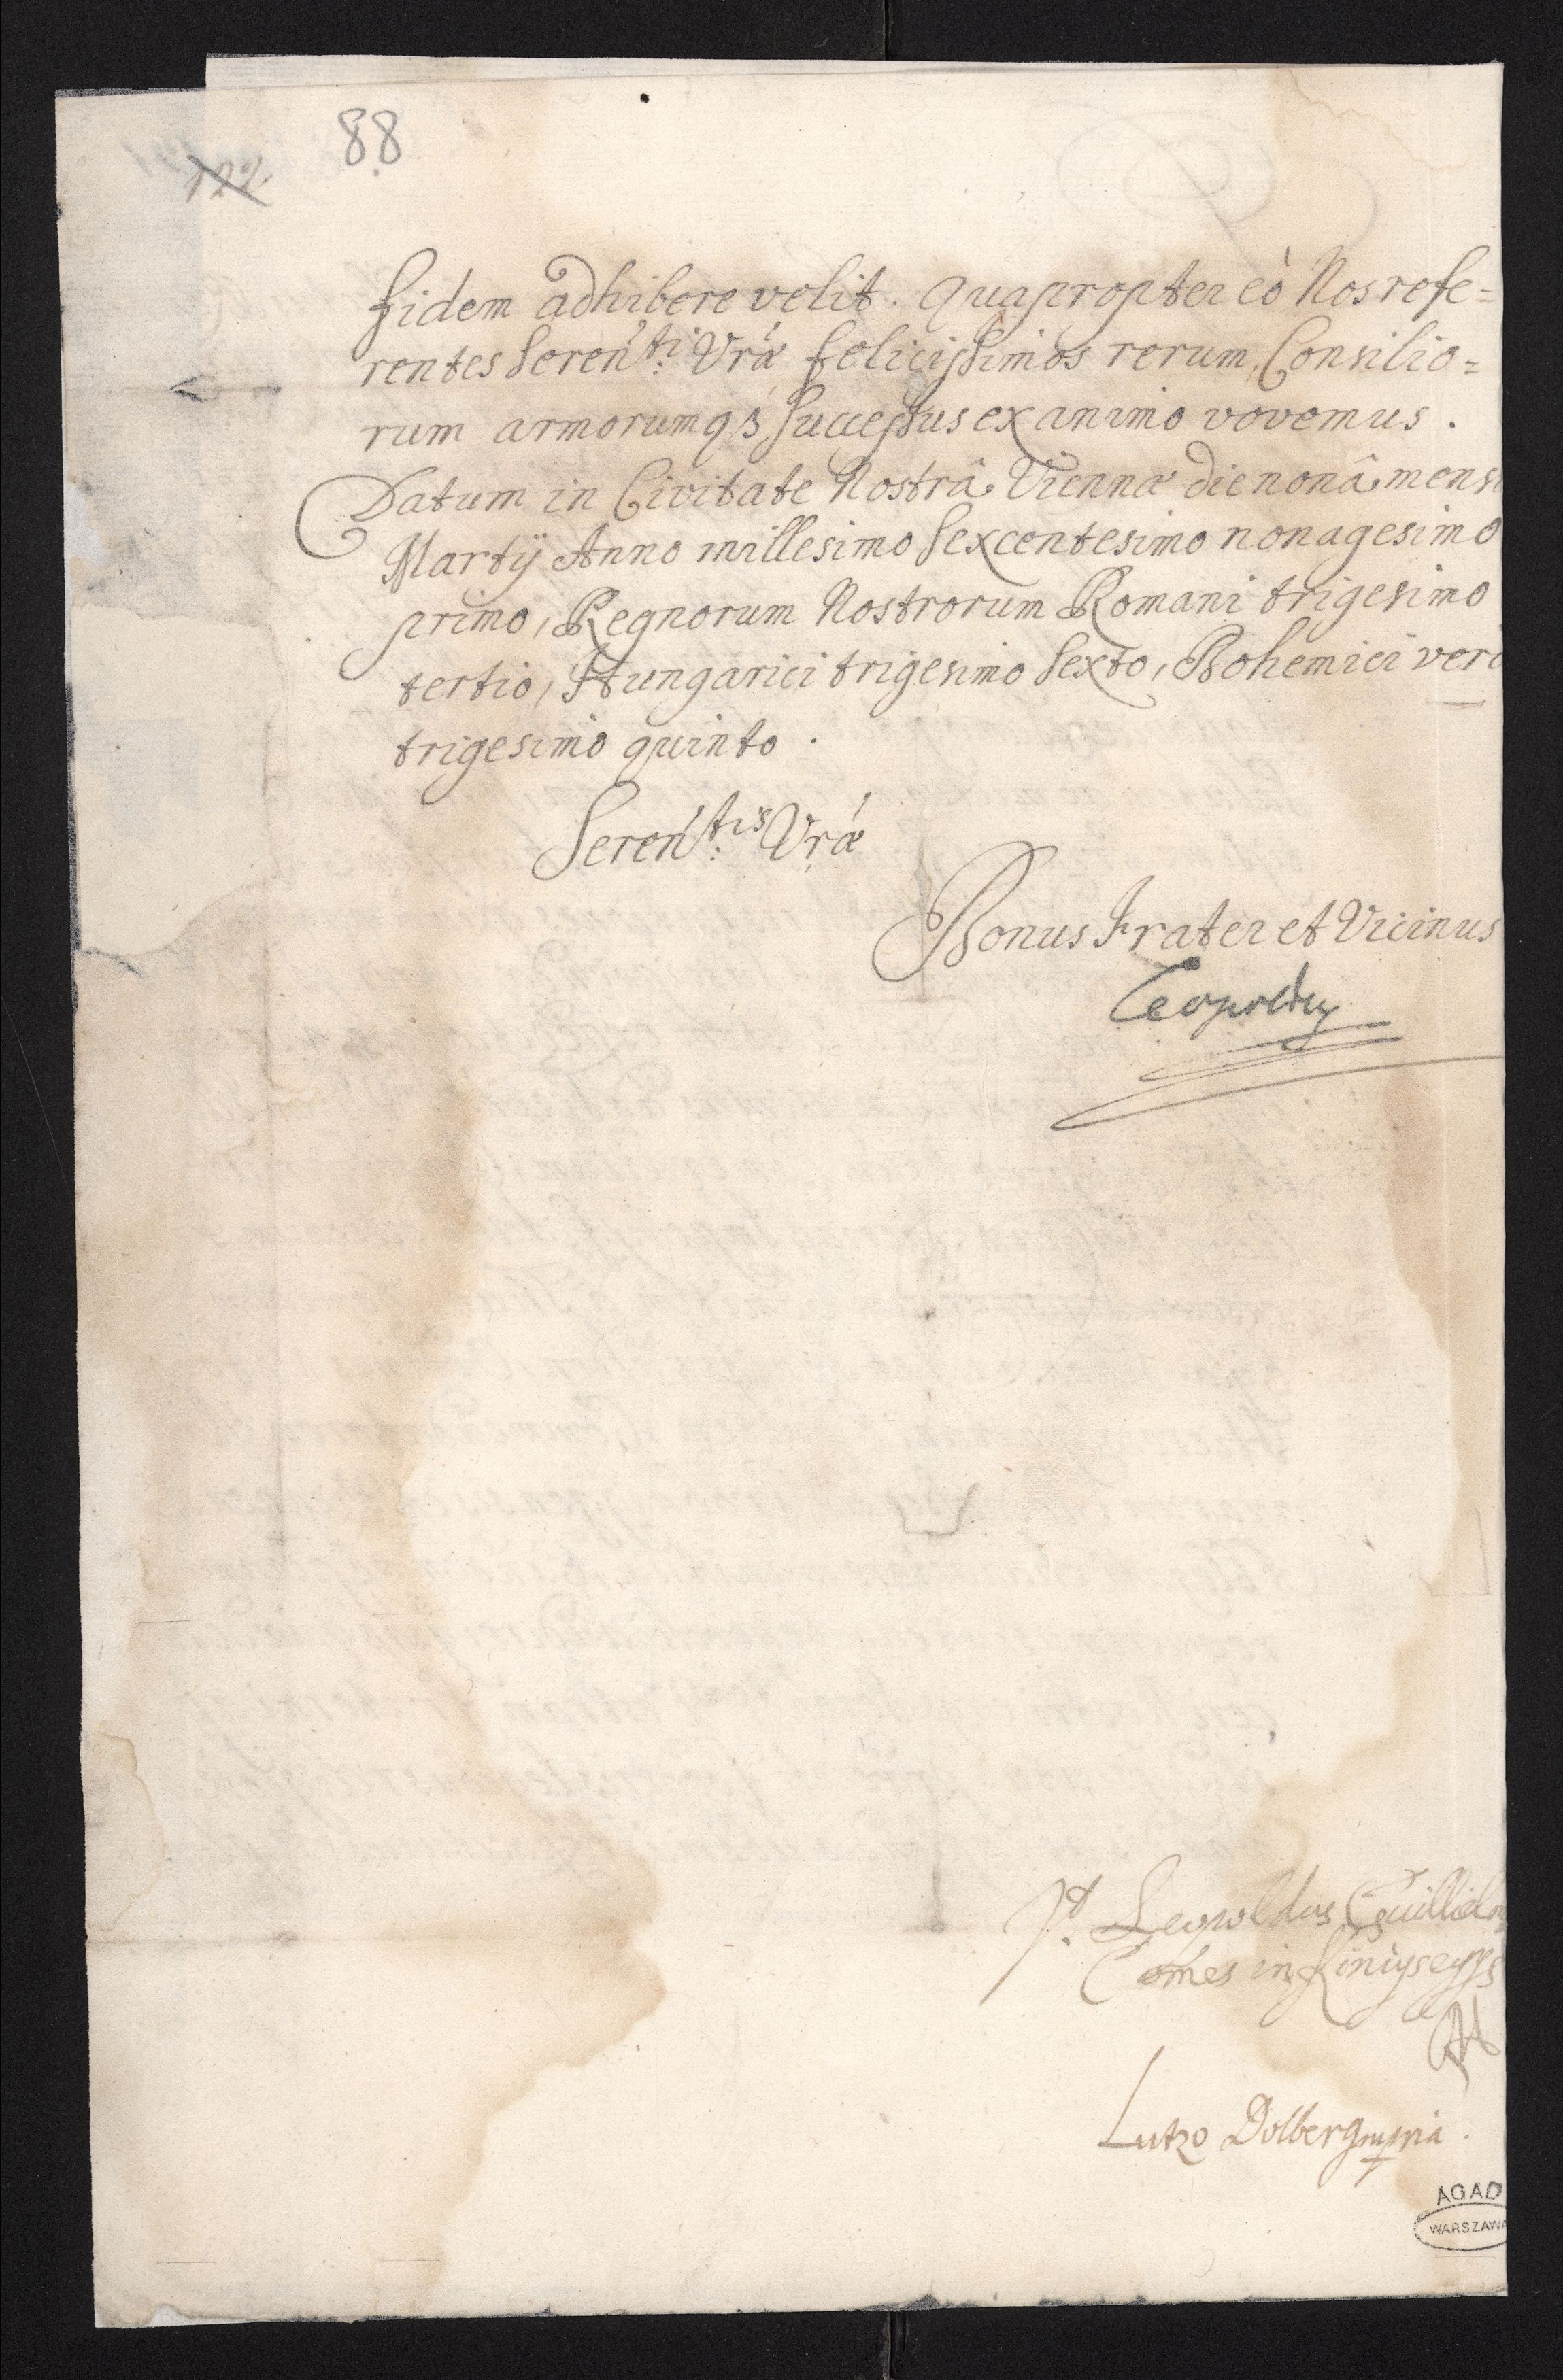 88
122
fidem adhibere velit. Quapropter eò Nos refe=
rentes Seren:ti Vræ felicissimos rerum, Consilio=
rum armorumq́ successus ex animo vovemus.
Datum in Civitate Nostrâ Viennæ die nonâ mensi
Martÿ Anno millesimo Sexcentesimo nonagesimo
primo, Regnorum Nostrorum Romani trigesimo
tertio, Hungarici trigesimo Sexto, Bohemici vero
trigesimo quinto.
Seren:tis Vræ
Bonus Frater et Vicinus
Leopoldus
Leopoldus Guilliel
Comes in Kinigsegg
Lutzo Dolberg mpria.
AGAD
WARSZAWA